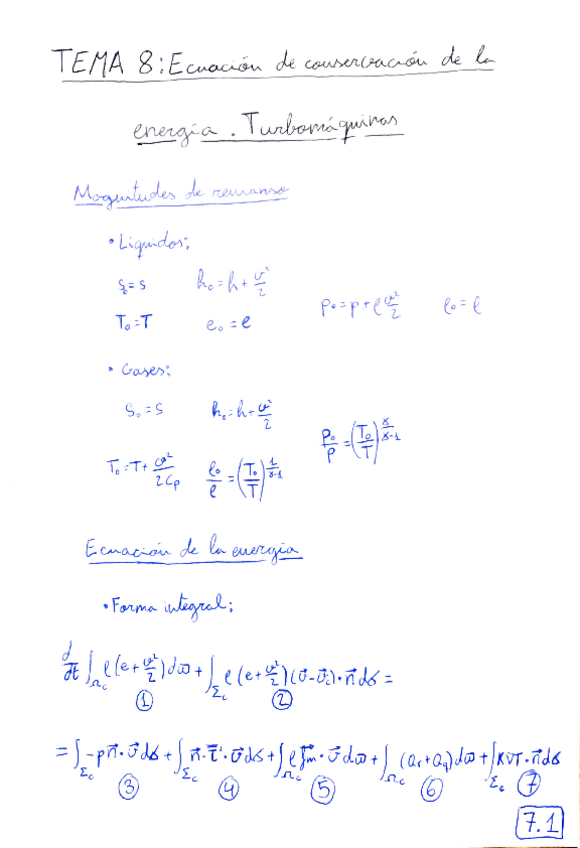 TEMA 8: Ecuación de conservación de la
energía. Turbomáquinas
Magnitudes de remanso
• Líquidos:
s₀ = s   h₀ = h + v²/2   p₀ = p + ρ v²/2   ρ₀ = ρ
T₀ = T   e₀ = e
• Gases:
s₀ = s   h₀ = h + v²/2   p₀/p = (T₀/T)^(γ/(γ-1))
T₀ = T + v²/(2Cp)   ρ₀/ρ = (T₀/T)^(1/(γ-1))
Ecuación de la energía
• Forma integral:
d/dt ∫_Ωc ρ(e + v²/2) dω + ∫_Σc ρ(e + v²/2)(v⃗ - v⃗c)·n⃗ dσ =
① ②
= ∫_Σc -p n⃗·v⃗ dσ + ∫_Σc n⃗·τ̿'·v⃗ dσ + ∫_Ωc ρ f⃗m·v⃗ dω + ∫_Ωc (Qr + Qq) dω + ∫_Σc K∇T·n⃗ dσ
③ ④ ⑤ ⑥ ⑦
7.1